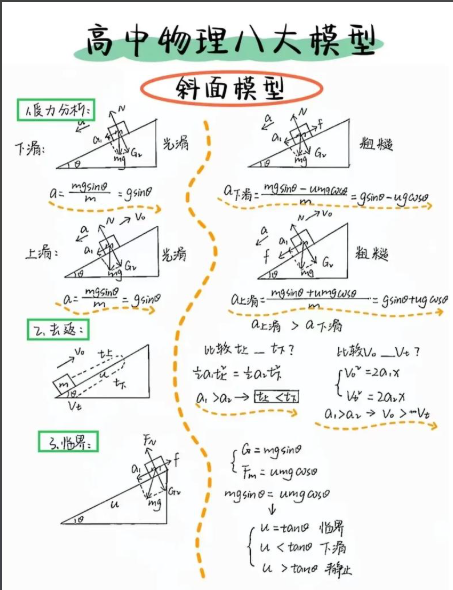 高中物理八大模型
斜面模型
1.受力分析:
下滑: a N a₁ mg G₂ θ 光滑
a=mgsinθ/m=gsinθ
a N f a₁ mg G₂ θ 粗糙
a下滑=mgsinθ-umgcosθ/m=gsinθ-ugcosθ
上滑: a N V₀ a₁ mg G₂ θ 光滑
a=mgsinθ/m=gsinθ
a N V₀ a₁ f mg G₂ θ 粗糙
a上滑=mgsinθ+umgcosθ/m=gsinθ+ugcosθ
a上滑 > a下滑
2.去返:
V₀ t上 m u t下 θ Vt
比较t上 __ t下?
½a₁t上²=½a₂t下²
a₁>a₂→t上<t下
比较V₀ __ Vt?
V₀²=2a₁x
Vt²=2a₂x
a₁>a₂→V₀>Vt
3.临界:
FN f a₁ G₂ mg u θ
G=mgsinθ
Fm=umgcosθ
mgsinθ=umgcosθ
↓
u=tanθ 临界
u<tanθ 下滑
u>tanθ 静止